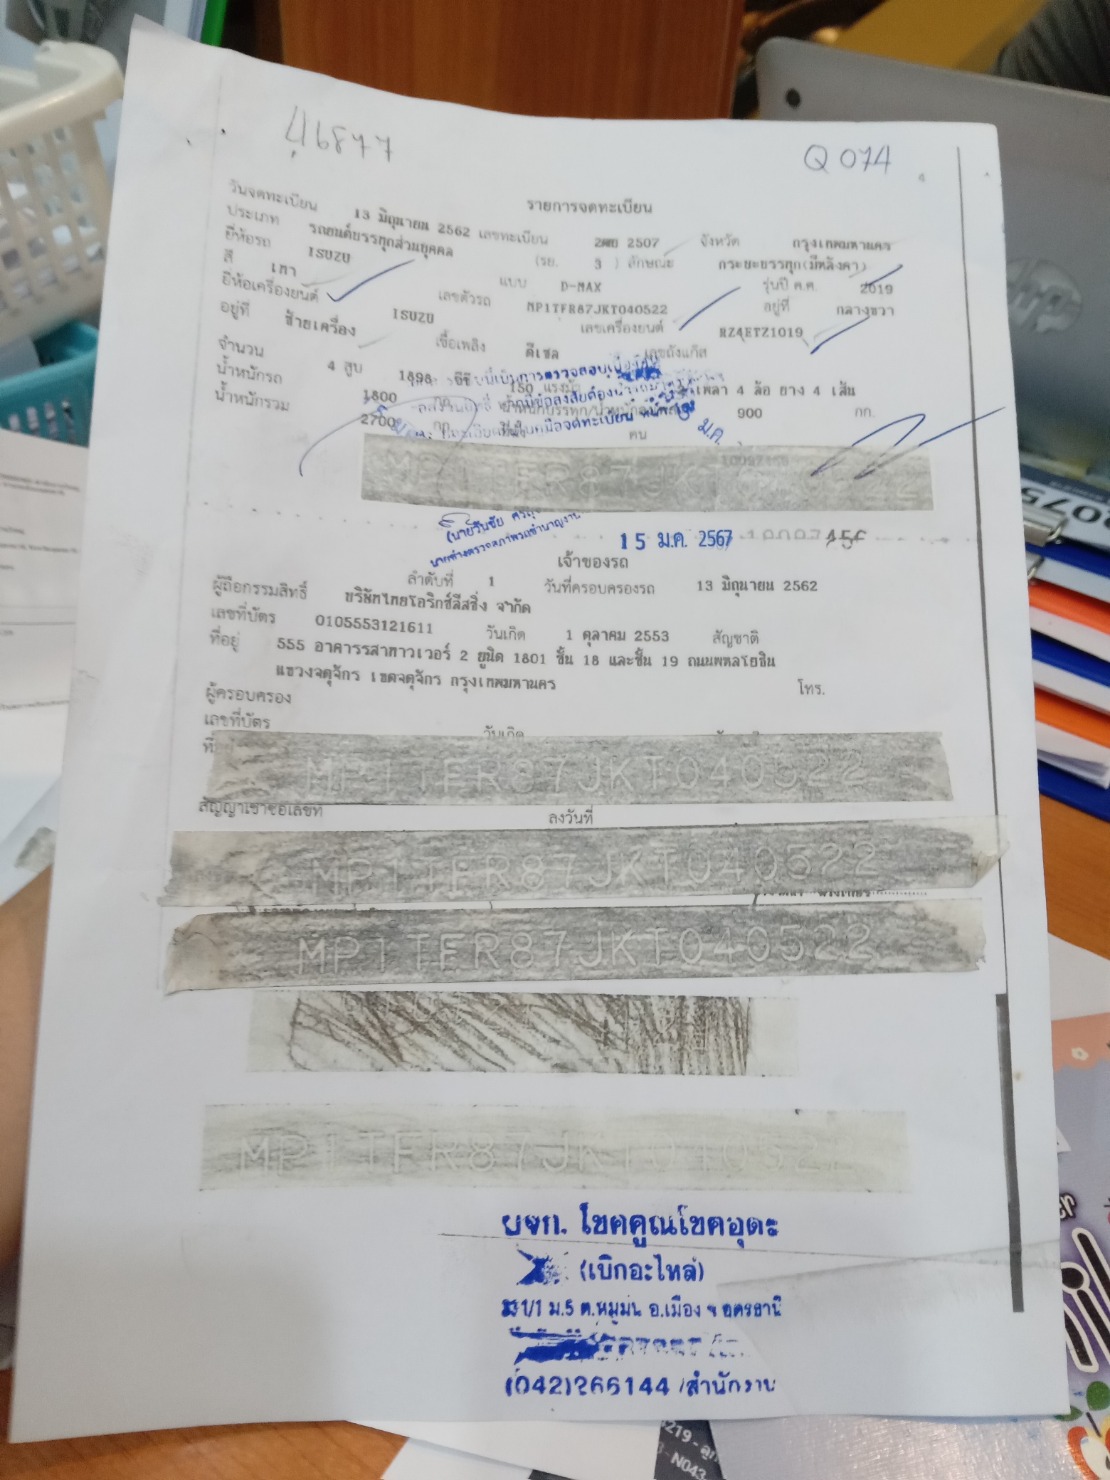 46877
Q 074
รายการจดทะเบียน
วันจดทะเบียน 13 มิถุนายน 2562 เลขทะเบียน 2507 จังหวัด กรุงเทพมหานคร
ประเภท รถยนต์บรรทุกส่วนบุคคล (รย. 3 ) ลักษณะ กระบะบรรทุก(มีหลังคา)
ยี่ห้อรถ ISUZU แบบ D-MAX รุ่นปี ค.ศ. 2019
สี เทา เลขตัวรถ MP1TFR87JKT040522 อยู่ที่ กลางขวา
ยี่ห้อเครื่องยนต์ ISUZU เลขเครื่องยนต์ RZ4ETZ1019
อยู่ที่ ซ้ายเครื่อง เชื้อเพลิง ดีเซล เลขถังแก๊ส
จำนวน 4 สูบ 1898 ซีซี 150 แรงม้า เพลา 4 ล้อ ยาง 4 เส้น
น้ำหนักรถ 1800 กก. 900 กก.
น้ำหนักรวม 2700 กก. คน
MP1TFR87JKT040522
15 ม.ค. 2567
เจ้าของรถ
ลำดับที่ 1 วันที่ครอบครองรถ 13 มิถุนายน 2562
ผู้ถือกรรมสิทธิ์ บริษัทไทยโอริกซ์ลีสซิ่ง จำกัด
เลขที่บัตร 0105553121611 วันเกิด 1 ตุลาคม 2553 สัญชาติ
ที่อยู่ 555 อาคารรสาทาวเวอร์ 2 ยูนิต 1801 ชั้น 18 และชั้น 19 ถนนพหลโยธิน
แขวงจตุจักร เขตจตุจักร กรุงเทพมหานคร โทร.
ผู้ครอบครอง
เลขที่บัตร วันเกิด
MP1TFR87JKT040522
สัญญาเช่าซื้อเลขที่ ลงวันที่
MP1TFR87JKT040522
MP1TFR87JKT040522
MP1TFR87JKT04052
หจก. โชคคูณโชคอุดะ
(เบิกอะไหล่)
ม.5 ต.หมูม่น อ.เมือง จ อุดรธานี
(042)266144 /สำนักงาน